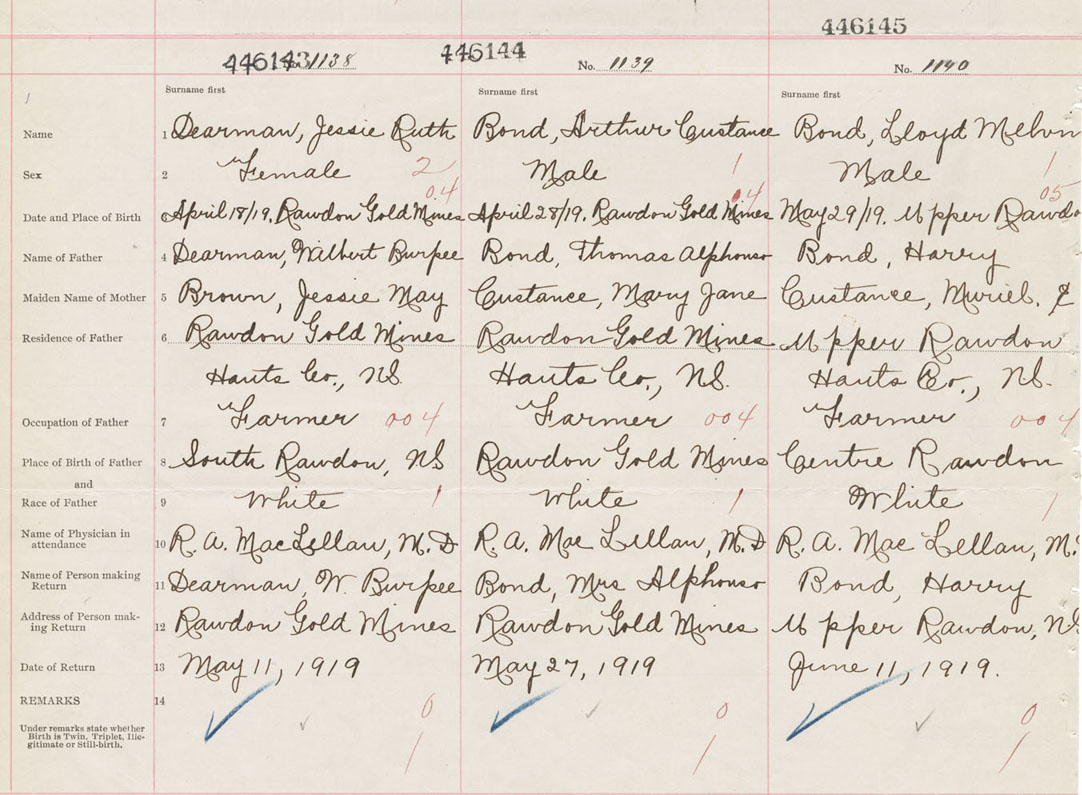 446145
446143 1138 446144 No. 1139 No. 1140
Surname first Surname first Surname first
Name 1 Dearman, Jessie Ruth Bond, Arthur Custance Bond, Lloyd Melvin
Sex 2 Female 2 Male 1 Male 1
04 04 05
Date and Place of Birth April 18/19. Rawdon Gold Mines April 28/19. Rawdon Gold Mines May 29/19. Upper Rawdo
Name of Father 4 Dearman, Wilbert Burpee Bond, Thomas Alphonso Bond, Harry
Maiden Name of Mother 5 Brown, Jessie May Custance, Mary Jane Custance, Muriel.
Residence of Father 6 Rawdon Gold Mines Rawdon Gold Mines Upper Rawdon
Hants Co., NS. Hants Co., NS. Hants Co., NS.
Occupation of Father 7 Farmer 004 Farmer 004 Farmer 004
Place of Birth of Father 8 South Rawdon, NS Rawdon Gold Mines Centre Rawdon
and
Race of Father 9 White 1 White 1 White 1
Name of Physician in
attendance 10 R. A. MacLellan, M.D R. A. Mac Lellan, M.D R. A. Mac Lellan, M.
Name of Person making
Return 11 Dearman, W. Burpee Bond, Mrs Alphonso Bond, Harry
Address of Person mak-
ing Return 12 Rawdon Gold Mines Rawdon Gold Mines Upper Rawdon, NS
Date of Return 13 May 11, 1919 May 27, 1919 June 11, 1919.
REMARKS 14 0 0 0
Under remarks state whether
Birth is Twin, Triplet, Ille-
gitimate or Still-birth. 1 1 1